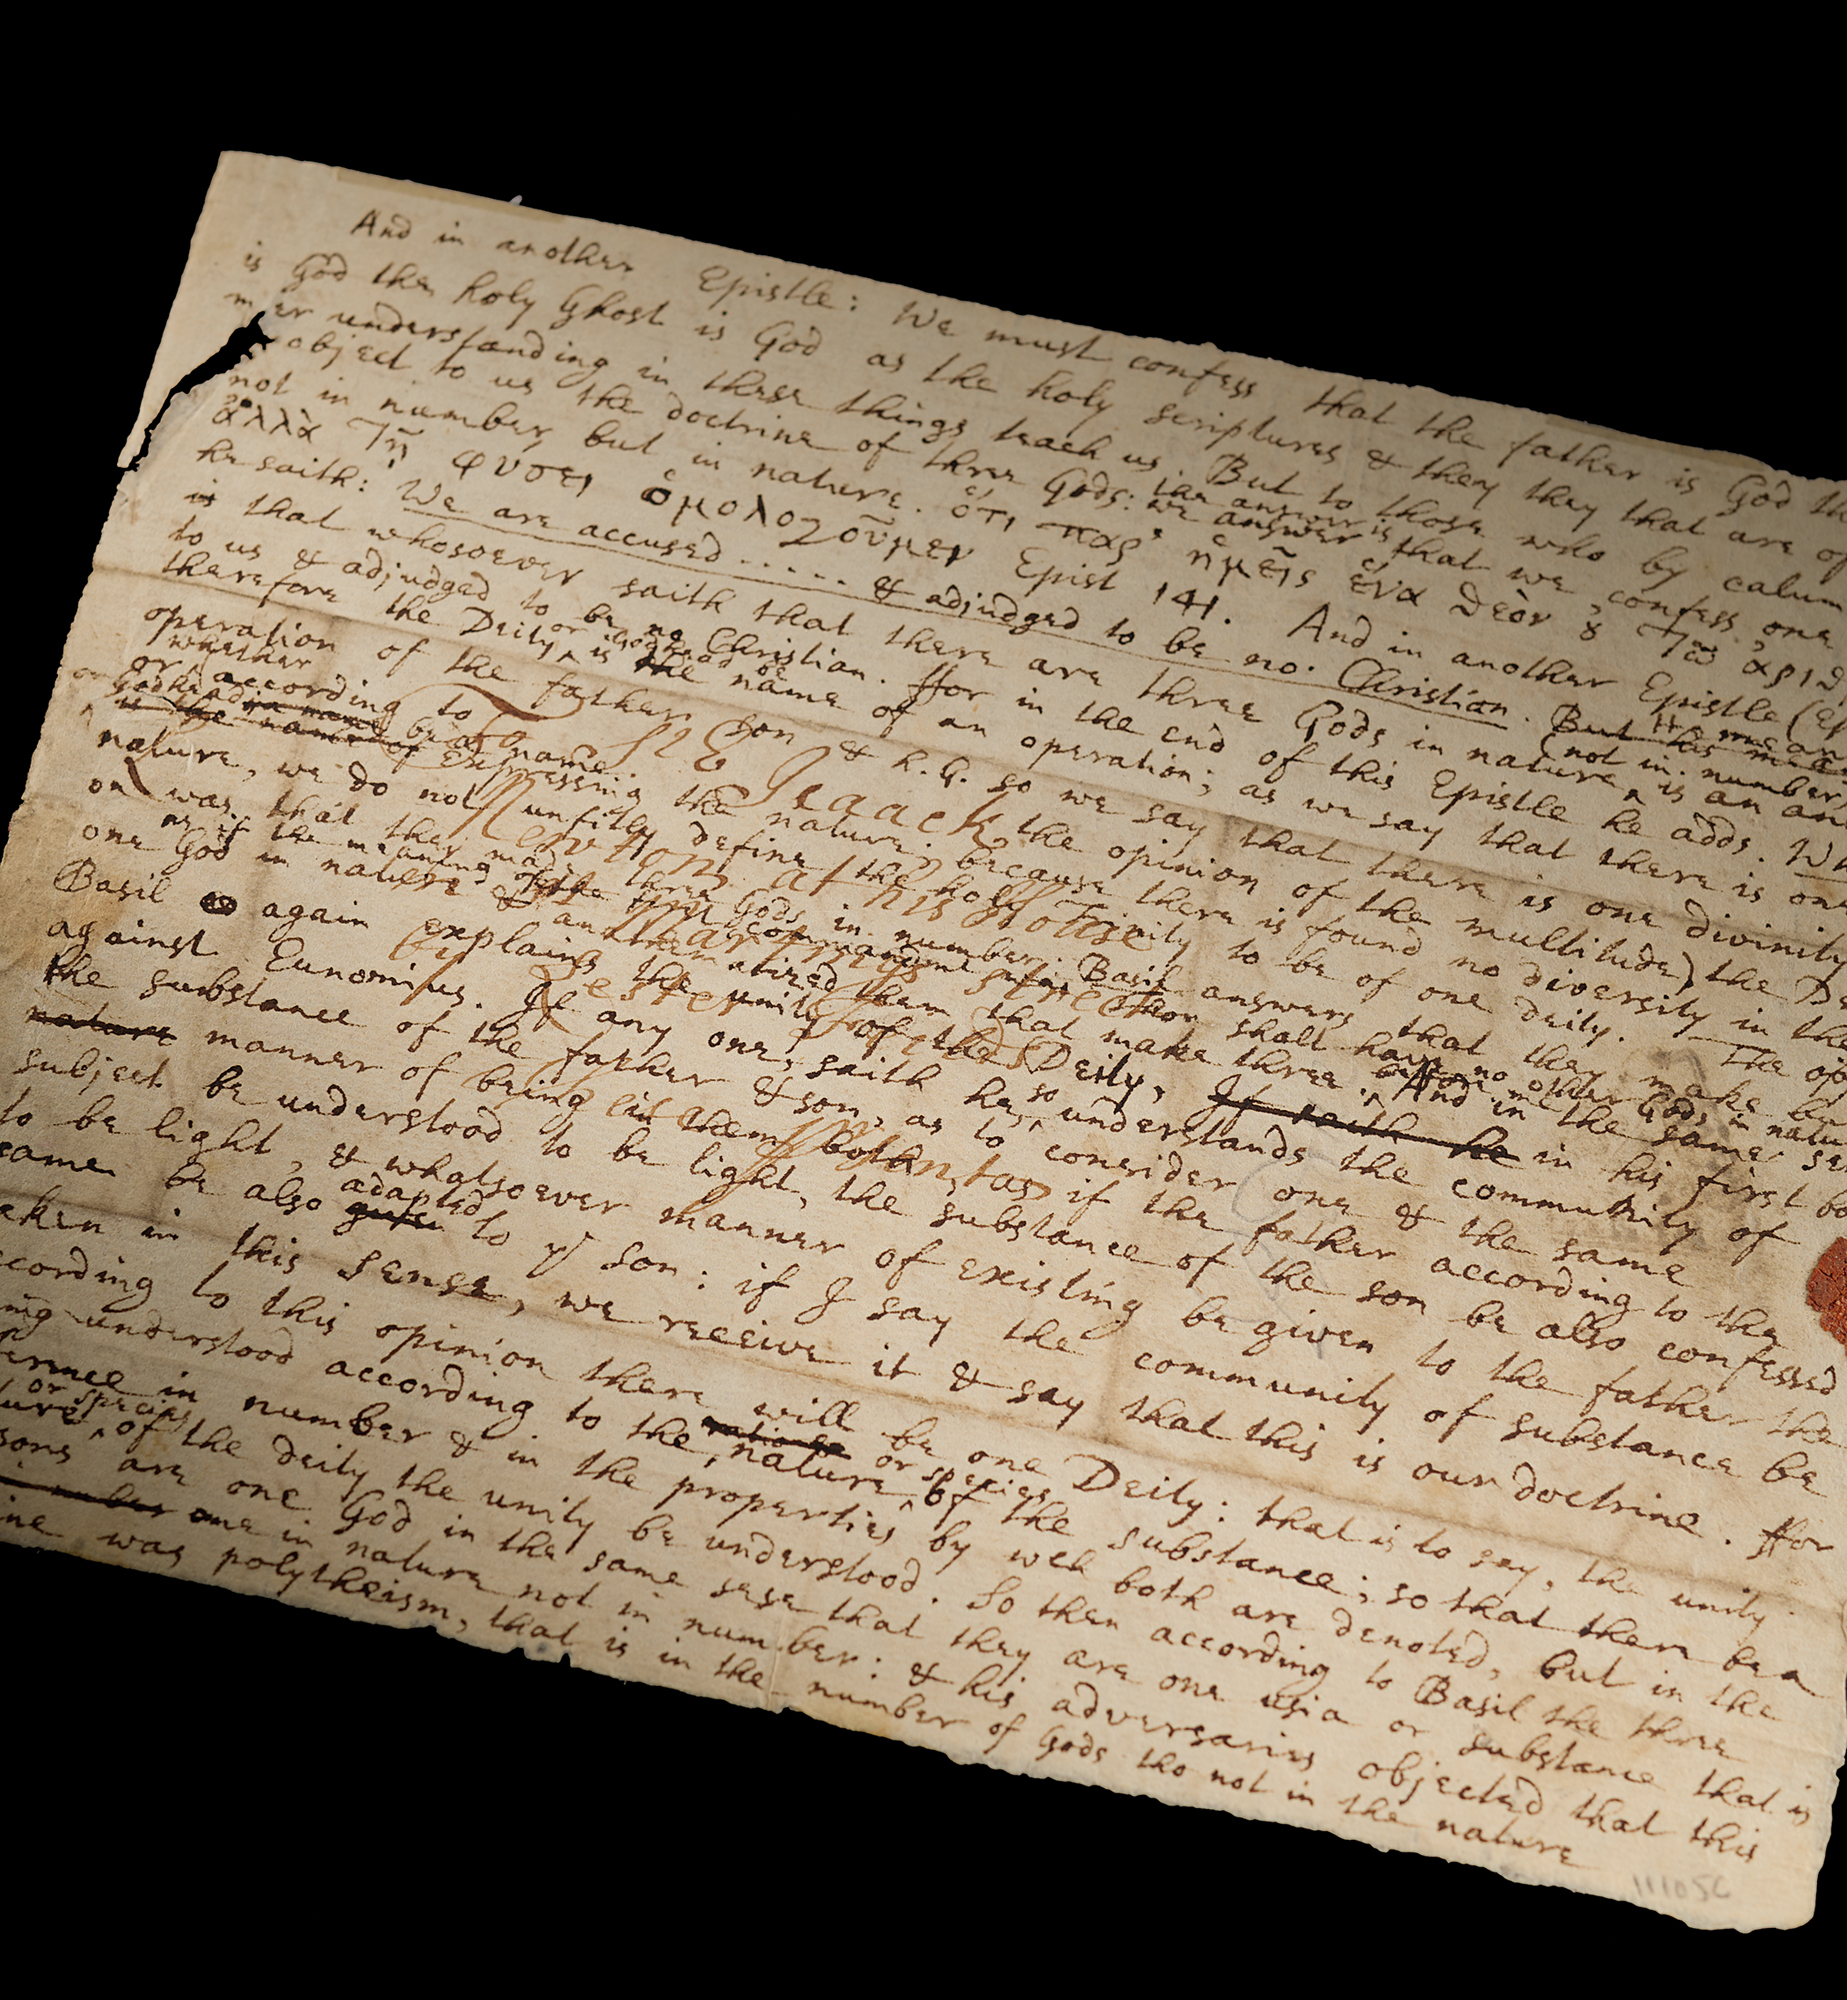 And in another Epistle: We must confess that the father is God the
is God the holy Ghost is God as the holy scriptures & they that are of
understanding in these things teach us. But to those who by calum
object to us the doctrine of three Gods: the answer is we answer that we confess one
not in number but in nature. ὅτι παρ' ἡμεῖς ἕνα Θεὸν ȣ τῶ ἀριθ
ἀλλὰ τῆ φύσει ὁμολογοῦμεν Epist 141. And in another Epistle (Ep
he saith: We are accused ..... & adjudged to be no Christian. But his mea He mean
is that whosoever saith that there are three Gods in nature (not in number is an an
to us & adjudged to be no Christian. ffor in the end of this Epistle he adds. Wh
therefore the Deity or Godhead be is the name of an operation; as we say that there is one
operation of the father Son & H. G. so we say that there is one divinity
or whether according to the opinion of the multitude) the De
or Godhead be a name expressing the nature; because there is found no diversity in the
nature, we do not unfitly define the holy Trinity to be of one deity. The op
on was that they made three Gods in number. Basil answers that they make but
one God in nature & anathematized them that make three. And in the same se
as if the meaning of the first commandment were, Thou shalt have no other Gods in natu
before me
Basil again explains the unity of the Deity, If saith he in his first bo
against Eunomius. If any one, saith he, so understands the community of
the substance of the father & son, as to consider one & the same
nature manner of being in them both, as if the father according to the
subject be understood to be light, the substance of the son be also confessed
to be light, & whatsoever manner of existing be given to the father the
same be also given adapted to yͤ son: if I say the community of substance be
aken in this sense, we receive it & say that this is our doctrine. ffor
cording to this opinion there will be one Deity: that is to say, the unity
ing understood according to the nature or species of the substance; so that there be a
erence in number & in the properties by wch both are denoted, but in the
ture or species of the deity the unity be understood. So then according to Basil the three
sons are one God in the same sense that they are one usia or substance that is
number one in nature not in number: & his adversaries objected that this
ine was polytheism, that is in the number of Gods tho not in the nature
To Sr Isaack
Newton at his House
in St Martins street
by Lester
Feilds
111056